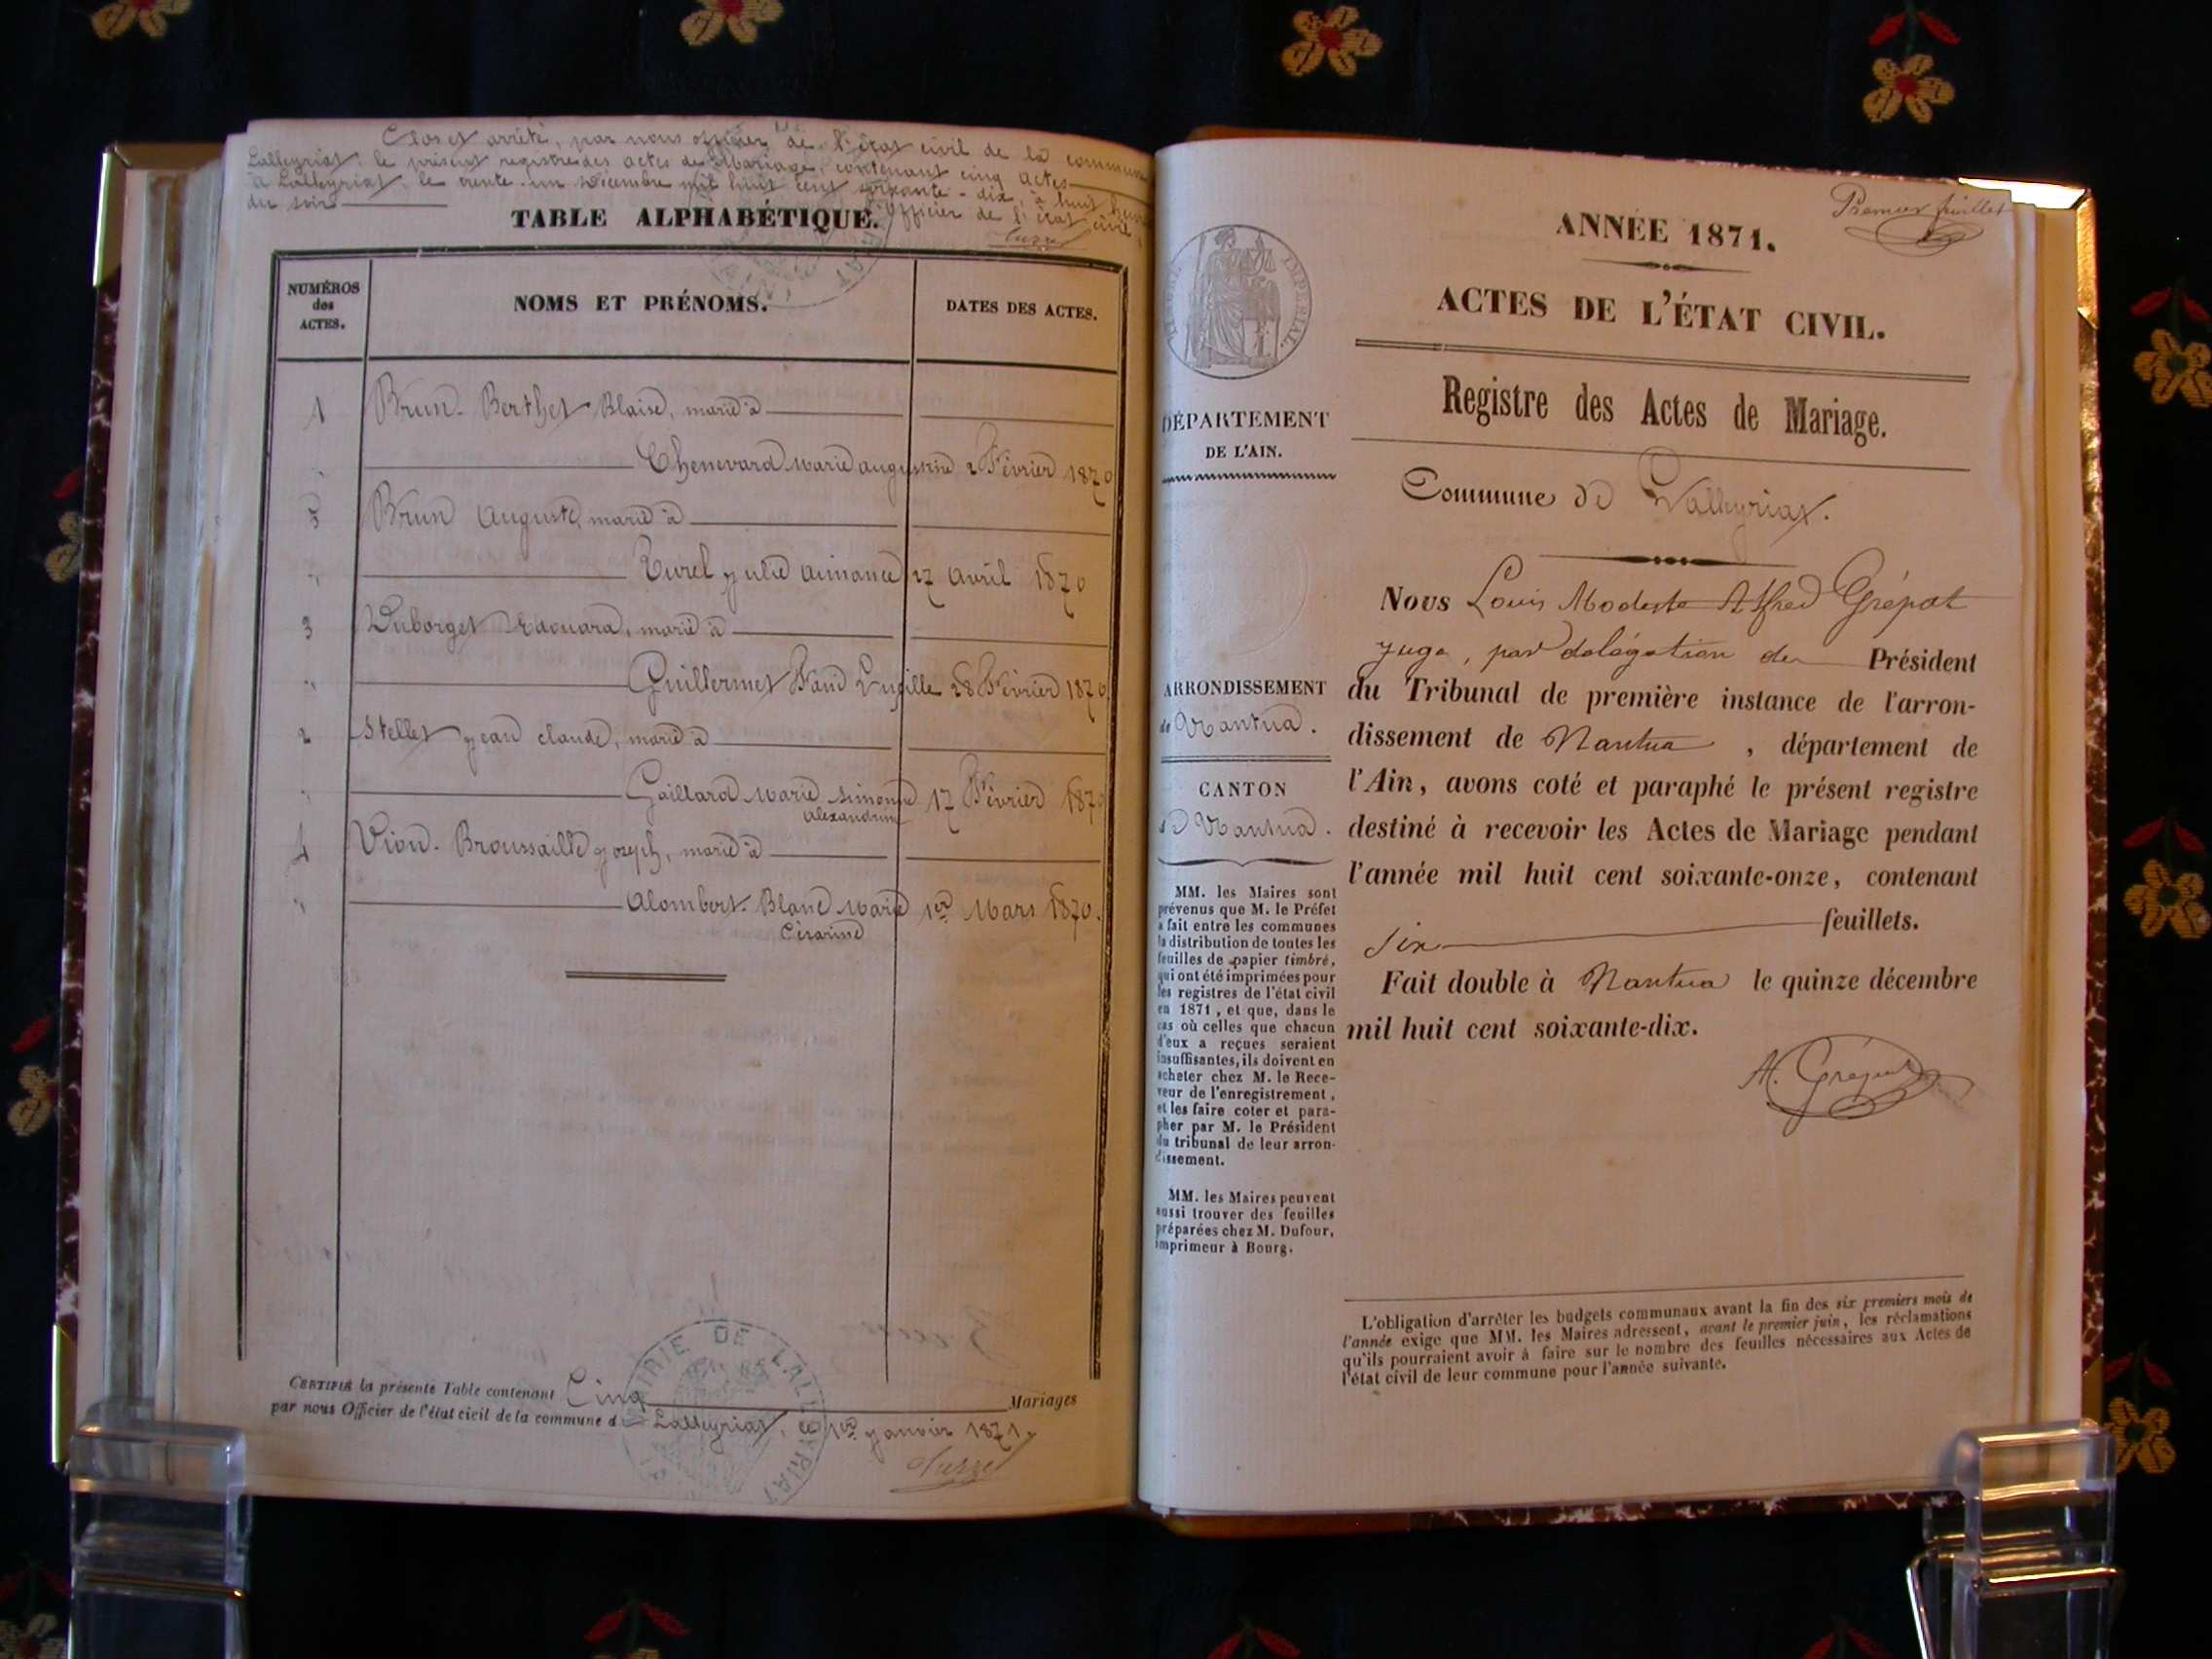 Clos et arrêté, par nous officier de l'état civil de la commune
Lalleyriat, le présent registre des actes de Mariage, contenant cinq actes
à Lalleyriat, le trente-un Décembre mil huit cent soixante-dix, à huit heures
du soir
l'officier de l'état civil,
TABLE ALPHABÉTIQUE.
NUMÉROS
des
ACTES.
NOMS ET PRÉNOMS.
DATES DES ACTES.
1 Brun-Berthet Blaise, marié à
Chenevard Marie augustine 2 Février 1870
5 Brun Auguste, marié à
Turel Julie aimance 27 Avril 1870
3 Duborget Edouard, marié à
Guillermet Lucille 28 Février 1870
2 Stellet jean claude, marié à
Gaillard Marie simonne 17 Février 1870
alexandrine
4 Vion-Broussaille joseph, marié à
Alombert-Blanc Marie 1er Mars 1870.
Césarine
CERTIFIÉ la présente Table contenant Cinq Mariages
par nous Officier de l'état civil de la commune d Lalleyriat, ce 1er janvier 1871.
MAIRIE DE LALLEYRIAT
Premier feuillet
ANNÉE 1871.
ACTES DE L'ÉTAT CIVIL.
Registre des Actes de Mariage.
Commune de Lalleyriat.
IMPERIAL.
DÉPARTEMENT
DE L'AIN.
ARRONDISSEMENT
de Nantua.
CANTON
de Nantua.
MM. les Maires sont
prévenus que M. le Préfet
a fait entre les communes
la distribution de toutes les
feuilles de papier timbré,
qui ont été imprimées pour
les registres de l'état civil
en 1871, et que, dans le
cas où celles que chacun
d'eux a reçues seraient
insuffisantes, ils doivent en
acheter chez M. le Rece-
veur de l'enregistrement,
et les faire coter et para-
pher par M. le Président
du tribunal de leur arron-
dissement.
MM. les Maires peuvent
aussi trouver des feuilles
préparées chez M. Dufour,
imprimeur à Bourg.
Nous Louis Modeste Alfred Grépat
juge, par délégation du Président
du Tribunal de première instance de l'arron-
dissement de Nantua, département de
l'Ain, avons coté et paraphé le présent registre
destiné à recevoir les Actes de Mariage pendant
l'année mil huit cent soixante-onze, contenant
six feuillets.
Fait double à Nantua le quinze décembre
mil huit cent soixante-dix.
A. Grépat
L'obligation d'arrêter les budgets communaux avant la fin des six premiers mois de
l'année exige que MM. les Maires adressent, avant le premier juin, les réclamations
qu'ils pourraient avoir à faire sur le nombre des feuilles nécessaires aux Actes de
l'état civil de leur commune pour l'année suivante.